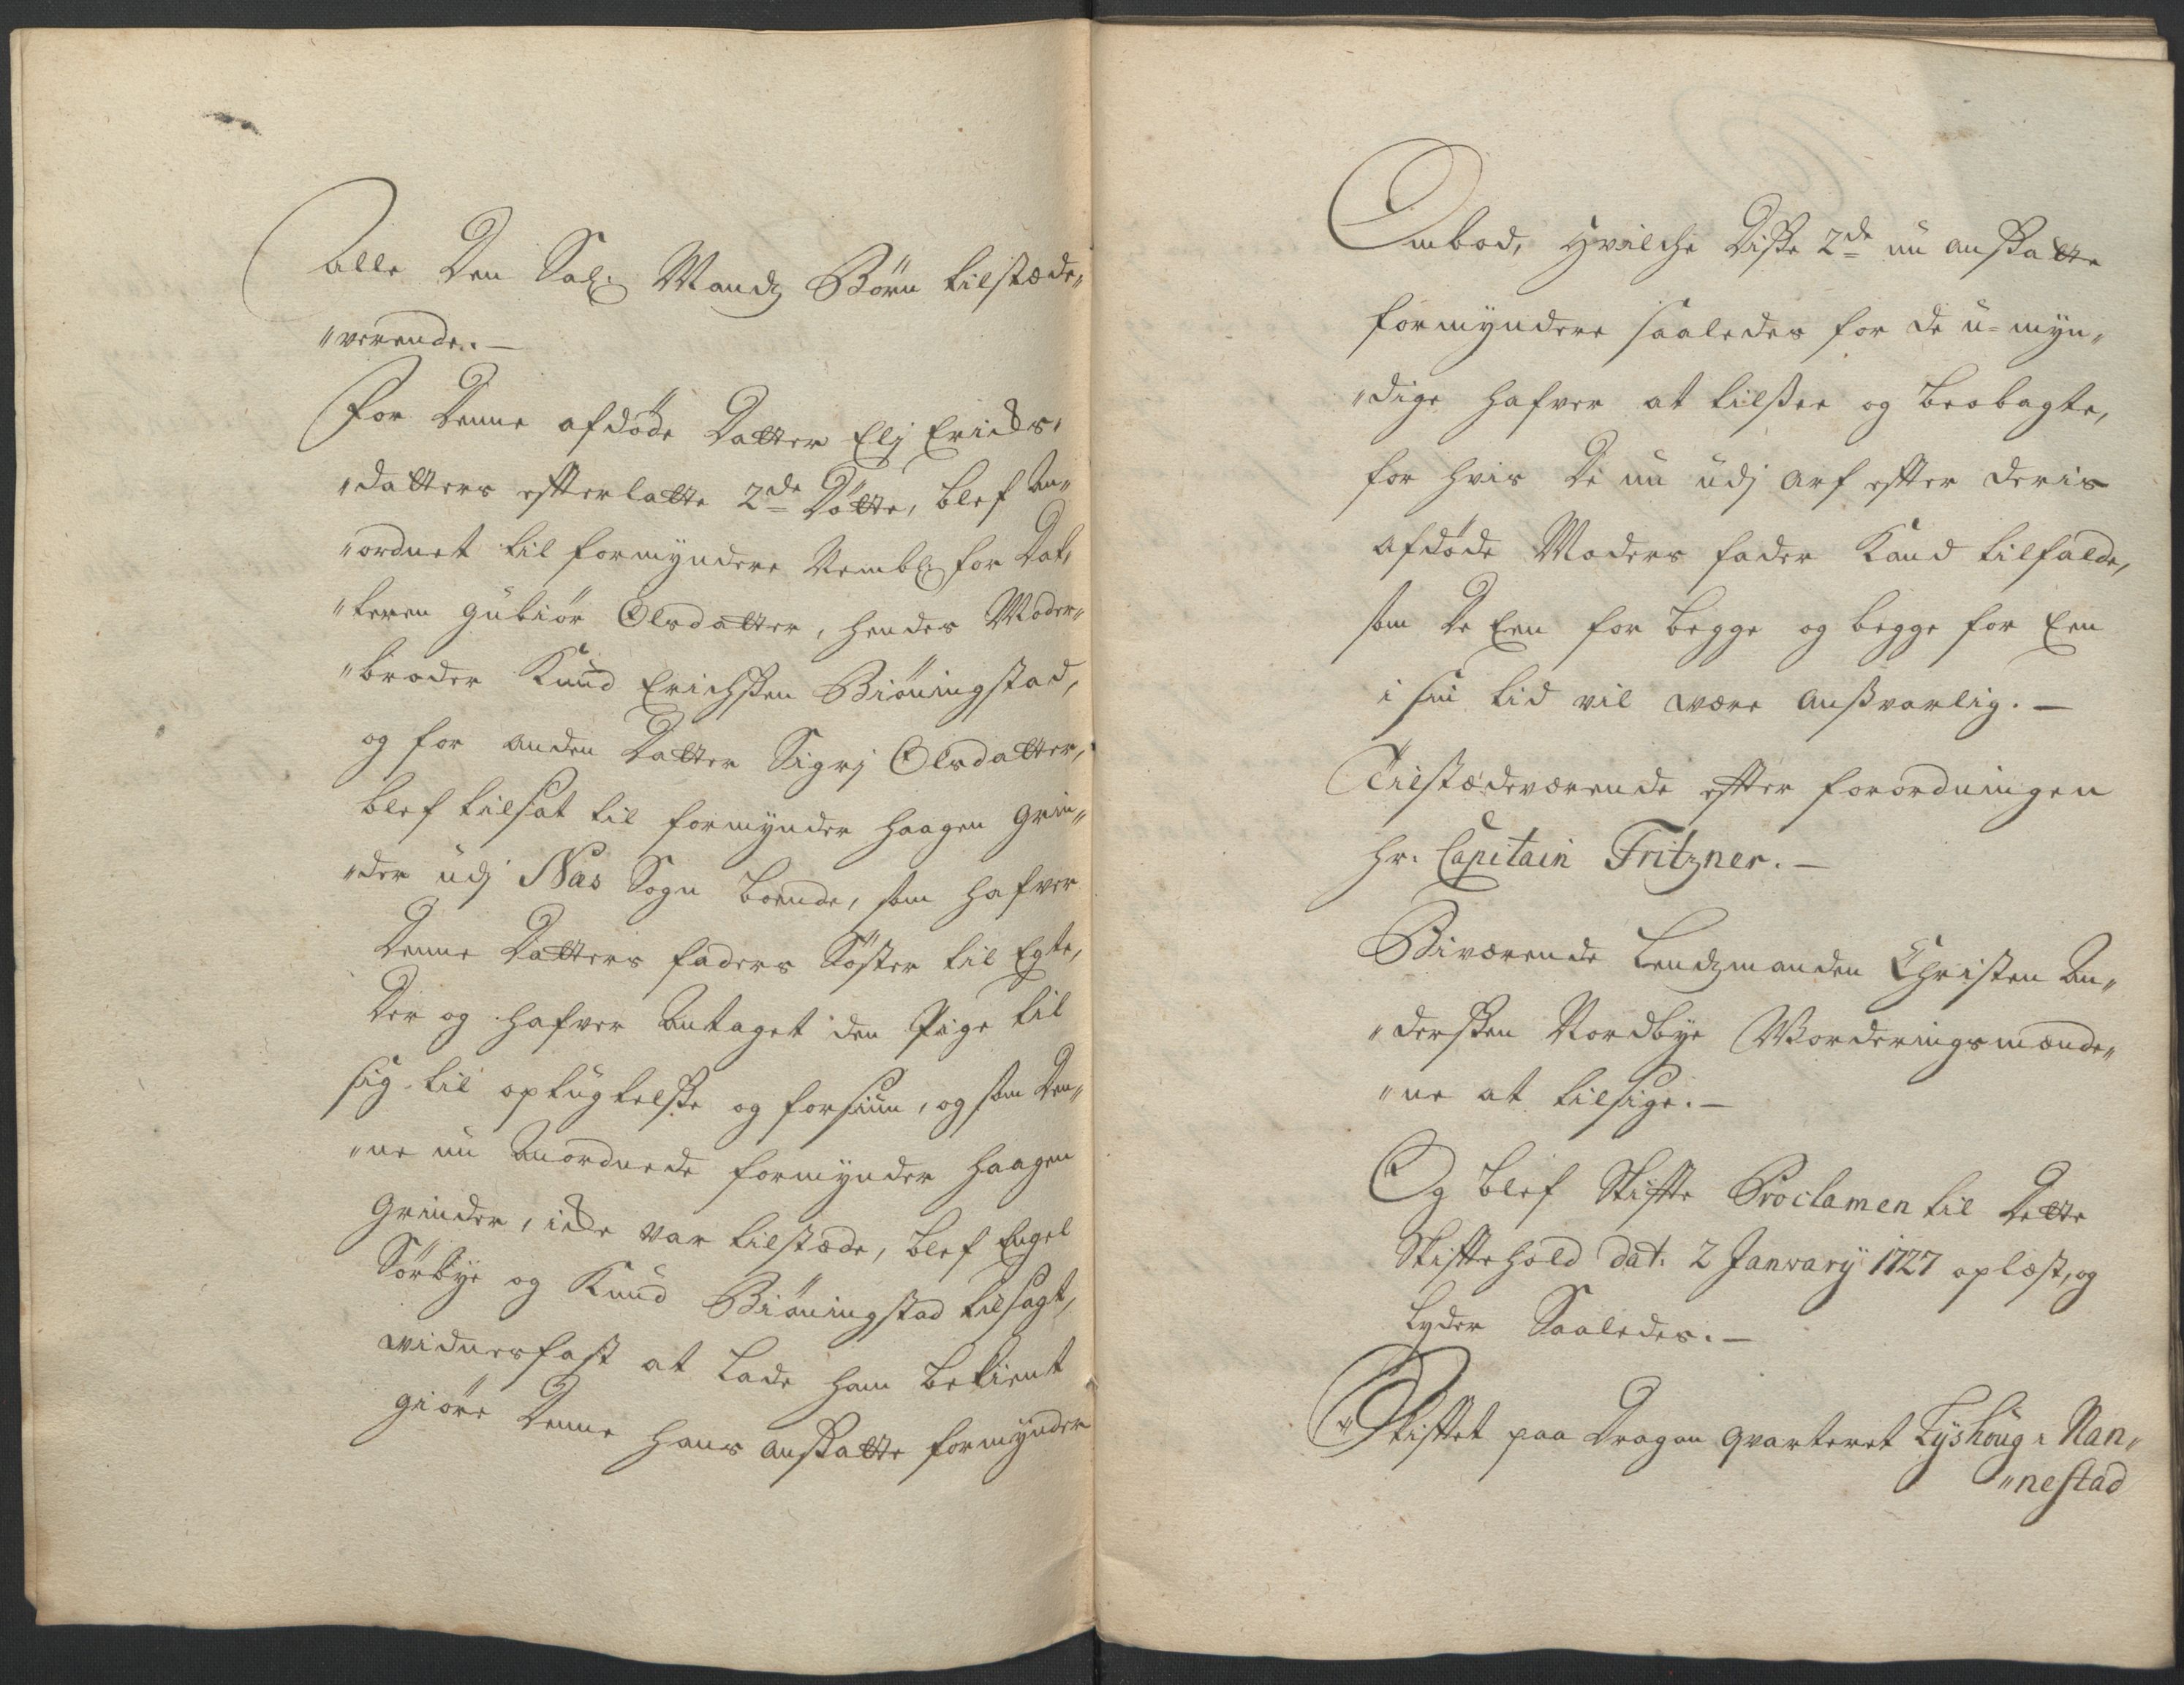 Alle Den Sal: Mands Børn tilstæde„
„verende. —
For Denne afdøde Datter Elj Erichs„
„datters efterlatte 2de Døtte, blef An„
„ordnet til formyndere Nembl: for Dat„
„teren Gubiør Olsdatter, hendes Moder„
„broder Knud Erichsen Biøningstad,
og for anden Datter Sigrj Olsdatter,
blef tilsat til formynder Haagen Grin„
„der udj Næs Sogn boende, som hafver
Denne Datters faders Søster til Egte,
Der og hafver Antaget den Pige til
sig til optugtelse og forsiun, og som Den„
„ne nu Anordnede formynder Haagen
Grinder, icke var tilstæde, blef Engel
Sørbye og Knud Biøningstad tilsagt,
widnesfast at lade ham bekient
giøre Denne hans ansatte formynder
Ombod, Hvilche Disse 2de nu ansatte
formyndere saaledes for de u-myn„
„dige hafver at tilsee og beobagte,
for hvis De nu udj arf efter deris
afdøde Moders fader Kand tilfalde,
som De Een for begge og begge for Een
i sin tid vil være ansvarlig. —
Tilstædeværende efter forordningen
Hr. Capitain Fritzner. —
Biværende Lendsmanden Christen An„
„dersen Nordbye Worderingsmænde„
„ne at tilsige. —
Og blef Skifte Proclamen til Dette
Skiftehold dat: 2 January 1727 oplæst, og
lyder Saaledes. —
Skiftet paa Dragon qvarteret Lyshoug i Nan„
„nestad